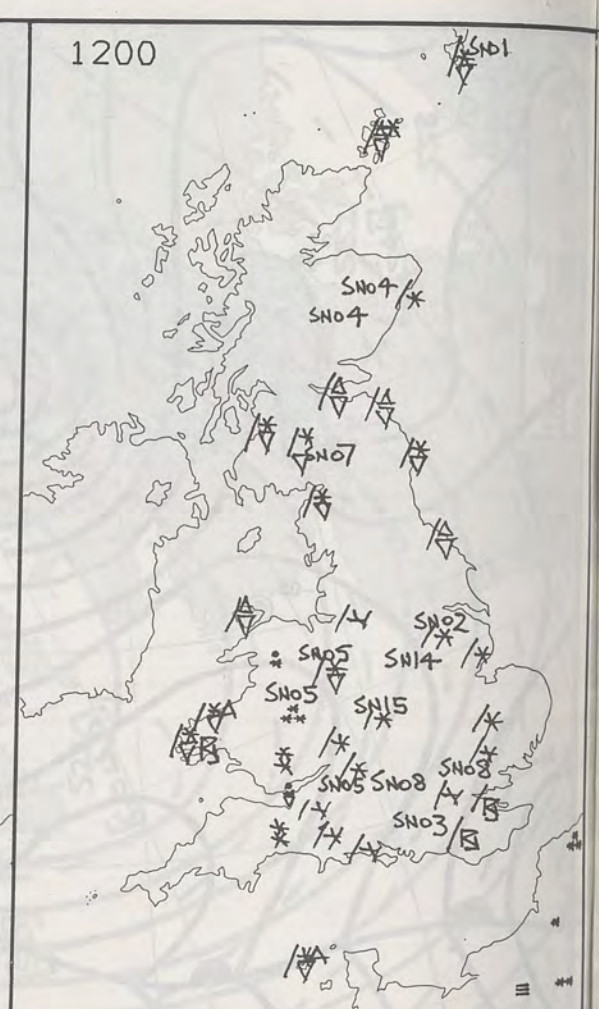 1200
SN01
SN04
SN04
SN07
SN02
SN05
SN14
SN05
SN15
SN08
SN05 SN08
SN03